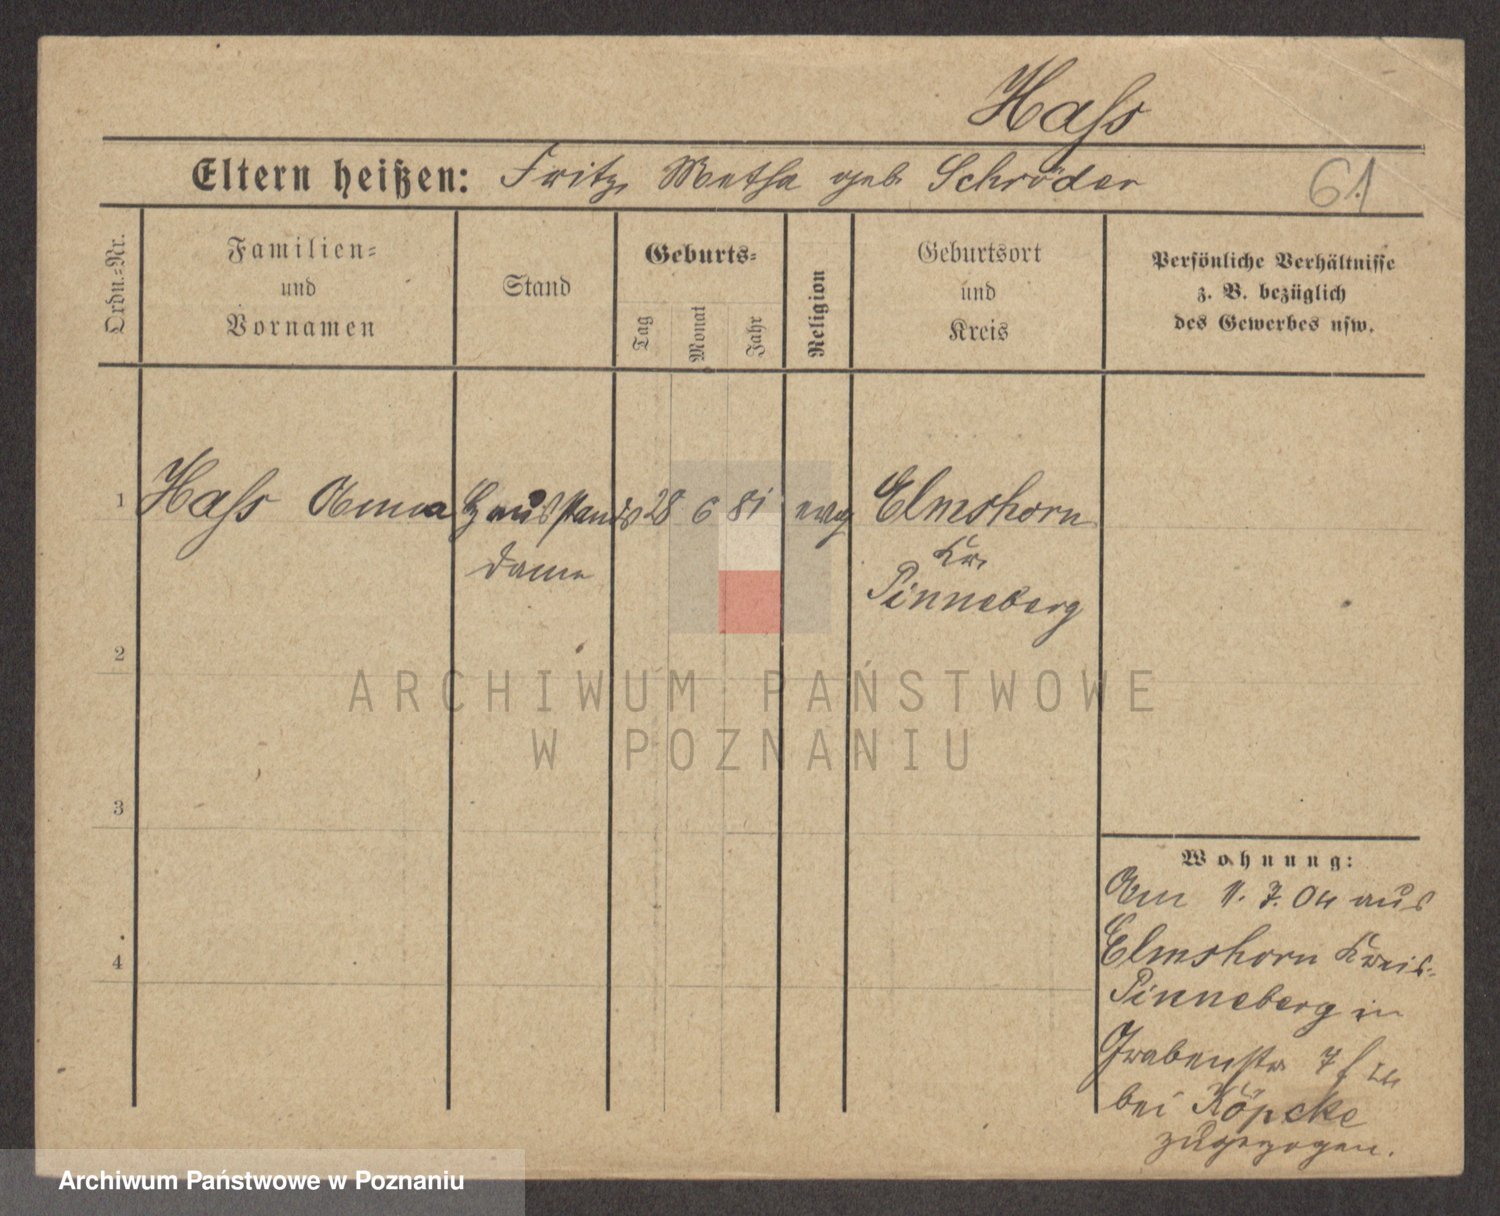 Hass
Eltern heißen: Fritz, Metha geb Schröder
61
Ordn.-Nr.
Familien-
und
Vornamen
Stand
Geburts-
Tag
Monat
Jahr
Religion
Geburtsort
und
Kreis
Persönliche Verhältnisse
z. B. bezüglich
des Gewerbes usw.
1 Hass Anna Hausstands 28 6 81 evg Elmshorn
dame Kr.
Pinneberg
2
3
4
ARCHIWUM PAŃSTWOWE
W POZNANIU
Wohnung:
Am 1. 7. 04 aus
Elmshorn Kreis-
Pinneberg in
Grabenstr 7
bei Köpcke
zugezogen.
Archiwum Państwowe w Poznaniu